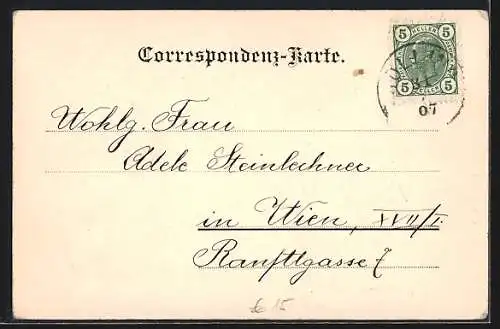 Correspondenz-Karte.
5 HELLER 5
5 5
07
Wohlg. Frau
Adele Steinlechner
in Wien, XVII/1.
Ranftlgasse 7
15